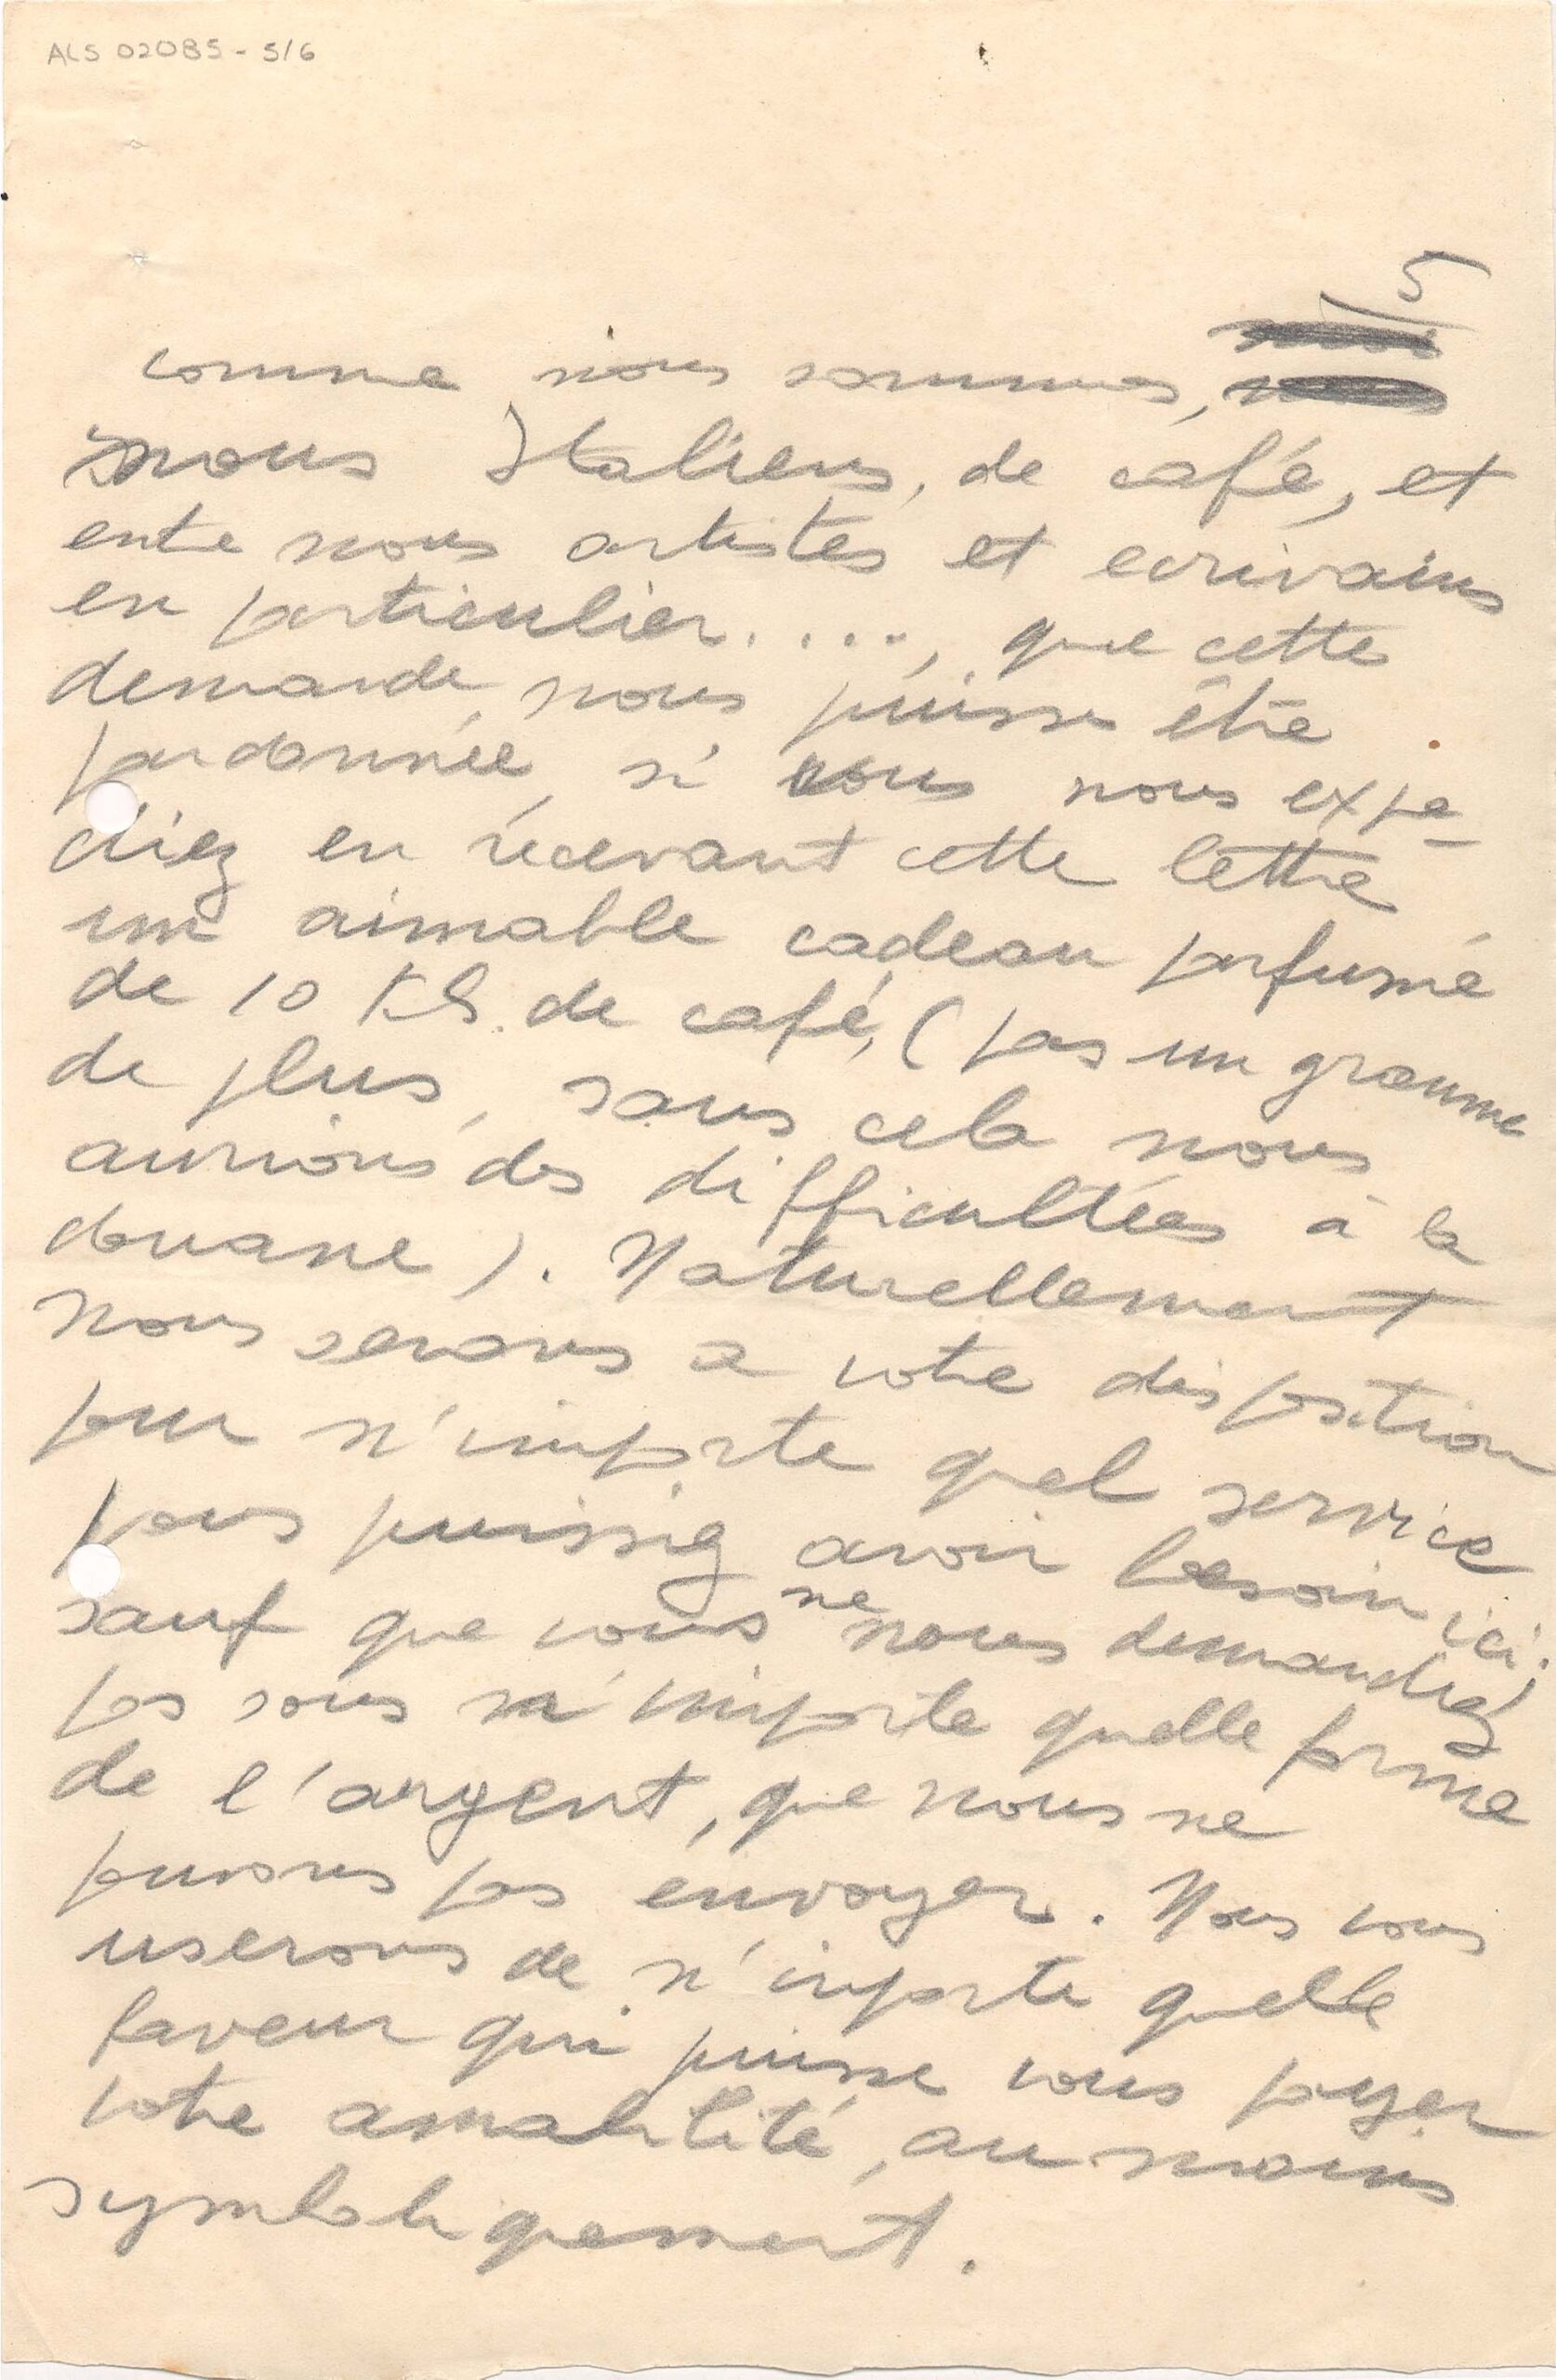 ALS 02085 - 5/6
5
comme nous sommes,
nous Italiens, de café, et
ente nous artistes et ecrivains
en particulier. . . . , que cette
demande, nous puisse être
pardonnée, si vous nous expe-
diez en récevant cette lettre
un aimable cadeau parfumé
de 10 Kls. de café, (pas un gramme
de plus, sans cela nous
aurions des difficultées à la
douane). Naturellement
nous serons a votre disposition
pour n'importe quel service
vous puissiez avoir besoin ici:
sauf que vous ne nous demandiez
pas sous n'importe quelle forme
de l'argent, que nous ne
puvons pas envoyer. Nous vous
userons de n'importe quelle
faveur qui puisse vous payer
votre amabilité, au moins
symboliquement.